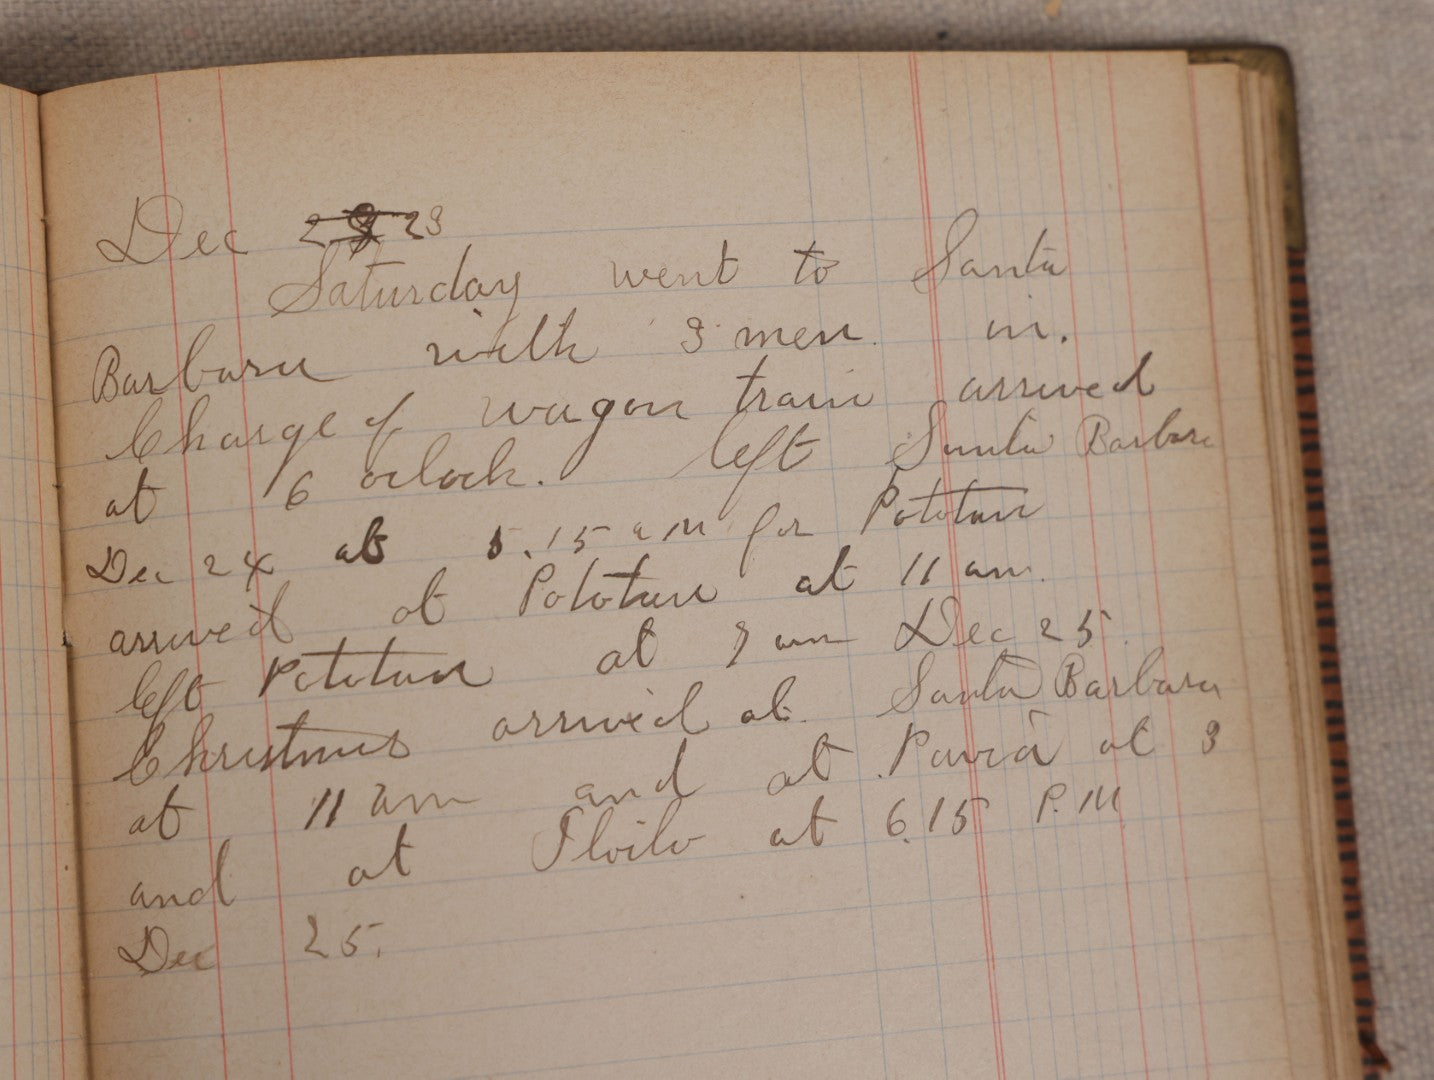 Dec 23
Saturday went to Santa
Barbara with 3 men in.
Charge of wagon train arrived
at 6 oclock. left Santa Barbara
Dec 24 at 5.15 a M for Pototan
arrived at Pototan at 11 am.
left Pototan at 7 am Dec 25.
Christmas arrived at. Santa Barbara
at 11 am and at Pavia at 3
and at Iloilo at 6.15 P.M
Dec 25.